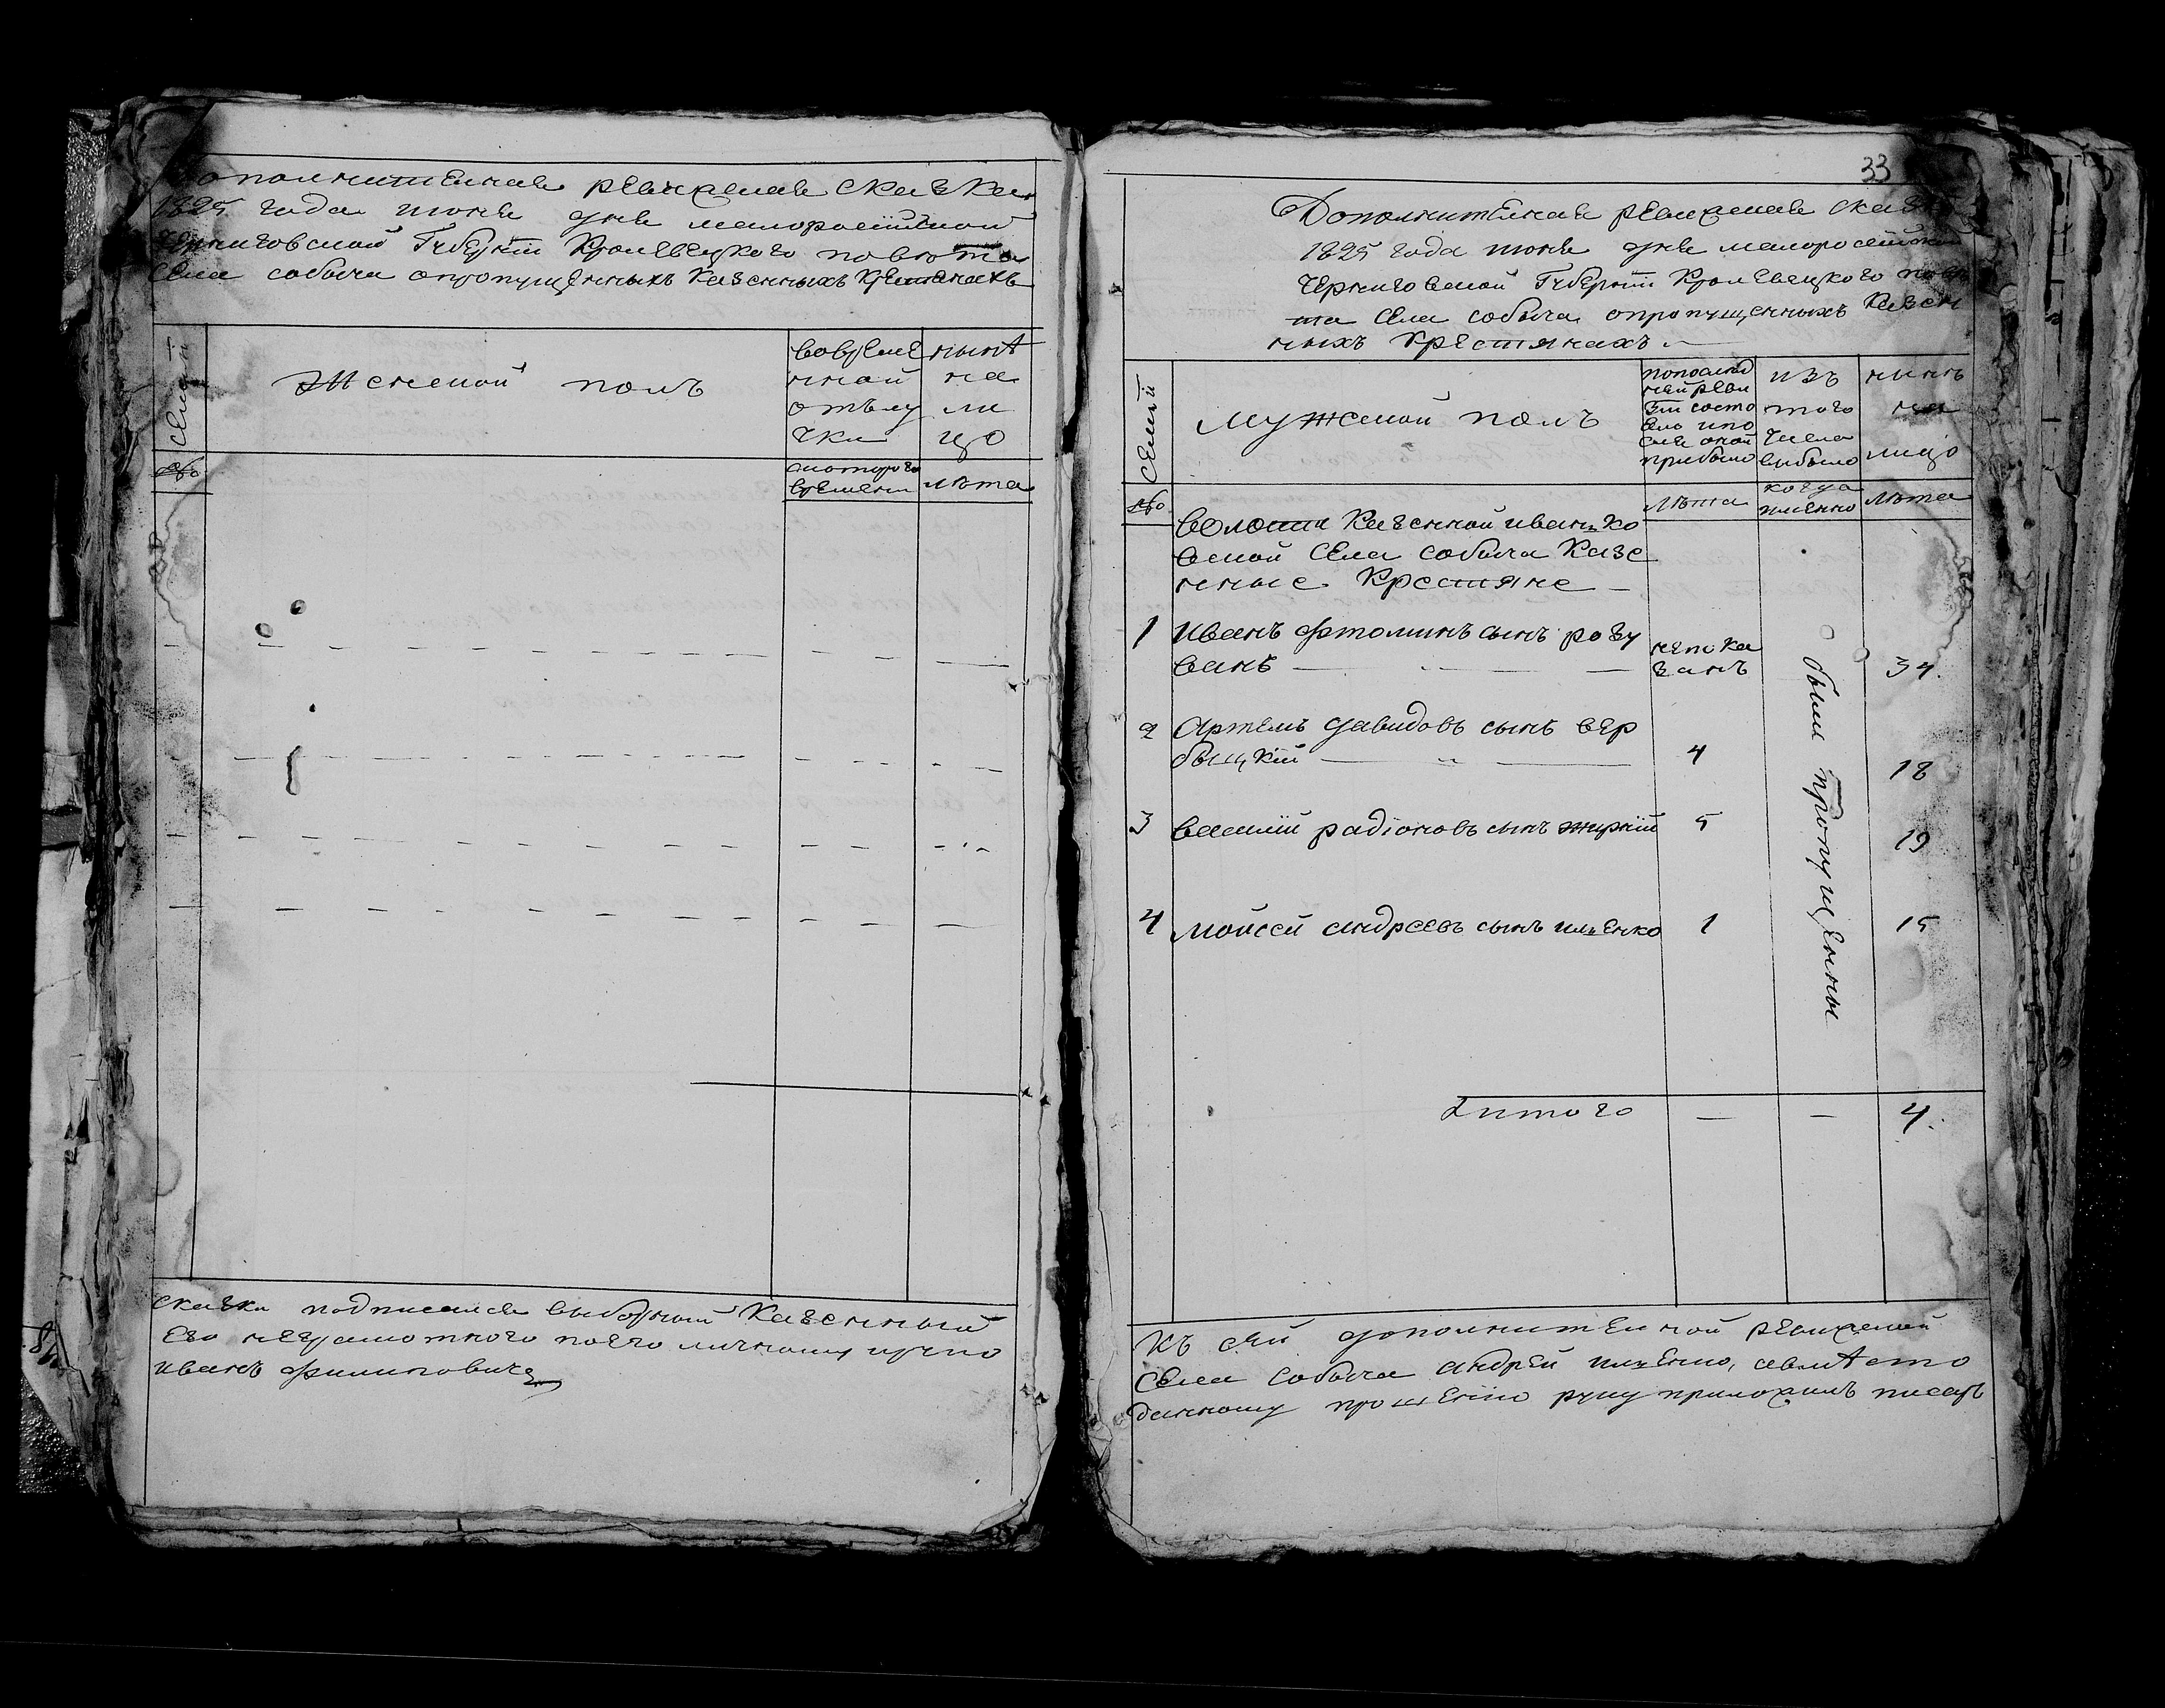 Дополнителная ревизская сказка
1825 года июня дня малоросийской
Черниговской Губернїи Кролевецкого повѣта
села собыча опропущенныхъ казенныхъ крестянахъ
семьи
женской полъ
вовреме
нной
отълу
чки
нынѣ
на
ли
цо
№
скоторого
времени
лѣта
сказки подписался выборный казенный
его неграмотного поего личному иучно
иванъ филиповичъ
33
Дополнителная ревизская сказка
1825 года июня дня малоросийской
Черниговской Губернїи Кролевецкого повѣ
та села собыча опропущенныхъ казен
ныхъ крестянахъ
семьи
мужеской полъ
попослед
ней реви
зїи состо
яло ипо
сле оной
прибыло
изъ
того
числа
выбыло
нынѣ
на
лицо
№
лѣта
когда
имянно
лѣта
волости казенной иванько
вской села собыча казе
нные крестяне
1 иванъ фтоминъ сынъ розу
ванъ непока
занъ 34
2 артемъ давидовъ сынъ вер
быцкїй 4 18
3 василїй радїоновъ сынъ жиркїй 5 19
4 мойсей андреевъ сынъ ильенко 1 15
были пропущенны
итого — — 4
къ сей дополнителной ревизской
села собыча андрей ильенко, авмѣсто
данному прошенїю руку приложилъ писарь